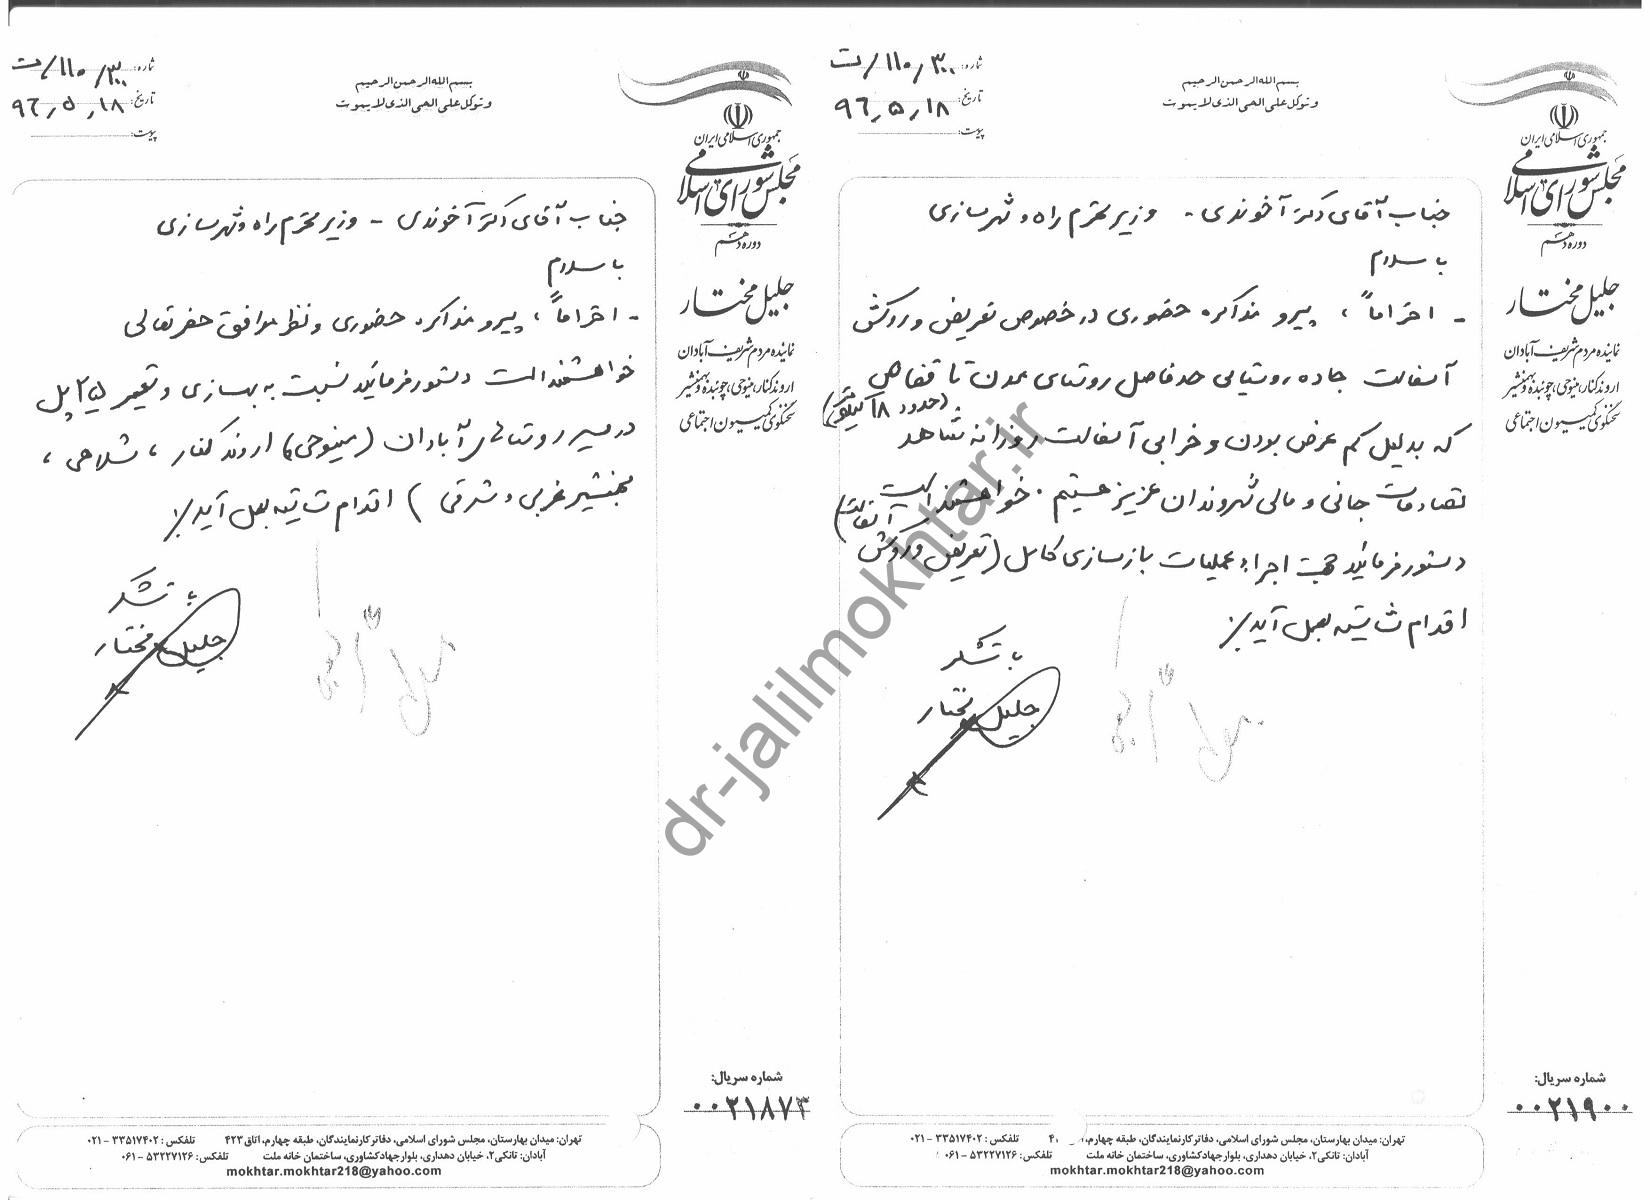 بسم الله الرحمن الرحیم
و توکل علی الحی الذی لا یموت
شماره: ۳۰۰/۱۱۰/ت
تاریخ: ۹۶٫۵٫۱۸
پیوست:
جمهوری اسلامی ایران
مجلس شورای اسلامی
دوره دهم
جلیل مختار
نماینده مردم شریف آبادان
اروندکنار، مینوحی، چوئبده و بهمنشیر
سخنگوی کمیسیون اجتماعی
جناب آقای دکتر آخوندی - وزیر محترم راه و شهرسازی
با سلام
- احتراماً، پیرو مذاکره حضوری در خصوص تعریض و روکش
آسفالت جاده روستایی حدفاصل روستای معدن تا قفاص
(حدود ۱۸ کیلومتر)
که بدلیل کم عرض بودن و خرابی آسفالت روزانه شاهد
تصادفات جانی و مالی شهروندان عزیز هستیم. خواهشمند است
دستور فرمائید جهت اجراء عملیات بازسازی کامل (تعریض و روکش آسفالت)
اقدام شایسته بعمل آید./
با تشکر
جلیل مختار
شماره سریال:
۰۰۲۱۹۰۰
تهران: میدان بهارستان، مجلس شورای اسلامی، دفاتر کار نمایندگان، طبقه چهارم، تلفکس: ۳۳۵۱۷۴۰۲ - ۰۲۱
آبادان: تانکی۲، خیابان دهداری، بلوار جهاد کشاوری، ساختمان خانه ملت تلفکس: ۵۳۲۲۷۱۲۶ - ۰۶۱
mokhtar.mokhtar218@yahoo.com
بسم الله الرحمن الرحیم
و توکل علی الحی الذی لا یموت
شماره: ۳۰۰/۱۱۰/ت
تاریخ: ۹۶٫۵٫۱۸
پیوست:
جمهوری اسلامی ایران
مجلس شورای اسلامی
دوره دهم
جلیل مختار
نماینده مردم شریف آبادان
اروندکنار، مینوحی، چوئبده و بهمنشیر
سخنگوی کمیسیون اجتماعی
جناب آقای دکتر آخوندی - وزیر محترم راه و شهرسازی
با سلام
- احتراماً، پیرو مذاکره حضوری و نظر موافق حضرتعالی
خواهشمند است دستور فرمائید نسبت به بهسازی و تعمیر ۲۵ پل
در مسیر روستاهای آبادان (مینوحی، اروندکنار، شلاحی،
بهمنشیر غربی و شرقی) اقدام شایسته بعمل آید./
با تشکر
جلیل مختار
شماره سریال:
۰۰۲۱۸۷۳
تهران: میدان بهارستان، مجلس شورای اسلامی، دفاتر کار نمایندگان، طبقه چهارم، اتاق ۴۲۳ تلفکس: ۳۳۵۱۷۴۰۲ - ۰۲۱
آبادان: تانکی۲، خیابان دهداری، بلوار جهاد کشاوری، ساختمان خانه ملت تلفکس: ۵۳۲۲۷۱۲۶ - ۰۶۱
mokhtar.mokhtar218@yahoo.com
dr-jalilmokhtar.ir